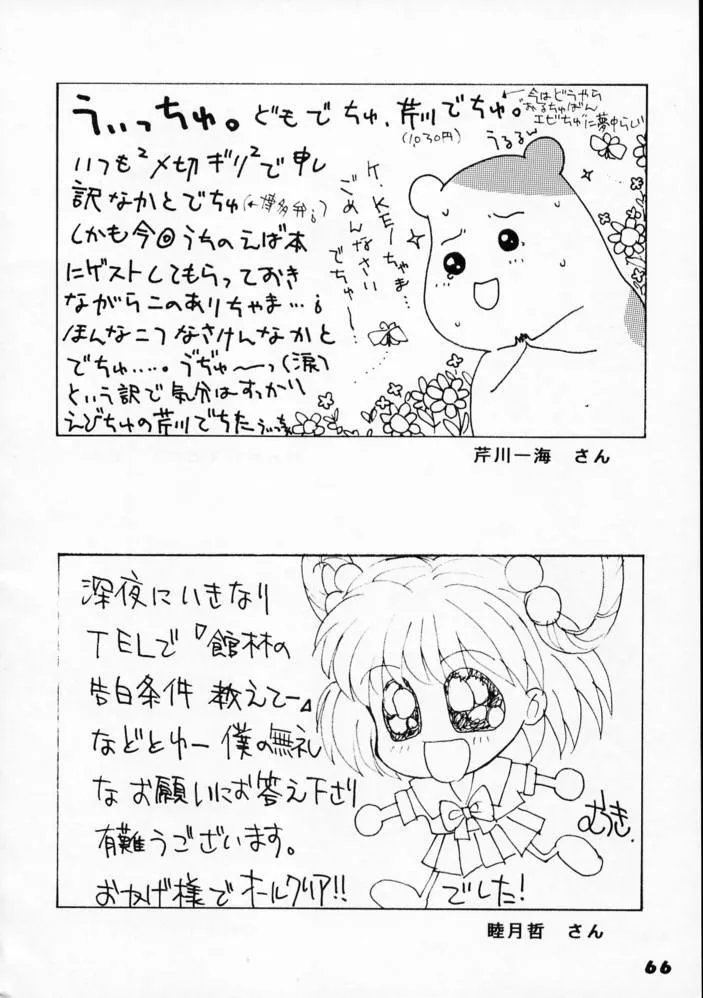 うぃっちゅ。どもでちゅ、芹川でちゅ。
(1030円)
←今はどうやら
おるちゅばん
エビちゅに夢中らしい
うるるっ
いつも²〆切ギリ²で申し
訳なかとでちゅ(←博多弁。)
しかも今回うちのえば本
にゲストしてもらっておき
ながらこのありちゃま…。
ほんなこつなさけんなかと
でちゅ….。うぢゅ〜っ(涙)
という訳で気分はすっかり
えびちゅの芹川でちた
K.KEIちゃま…
ごめんなさい
でちゅ〜…
芹川一海 さん
深夜にいきなり
TELで『館林の
告白条件 教えてー』
などとゆー僕の無礼
なお願いにお答え下さり
有難うございます。
おかげ様でオールクリア!!
でした!
むつき.
睦月哲 さん
66